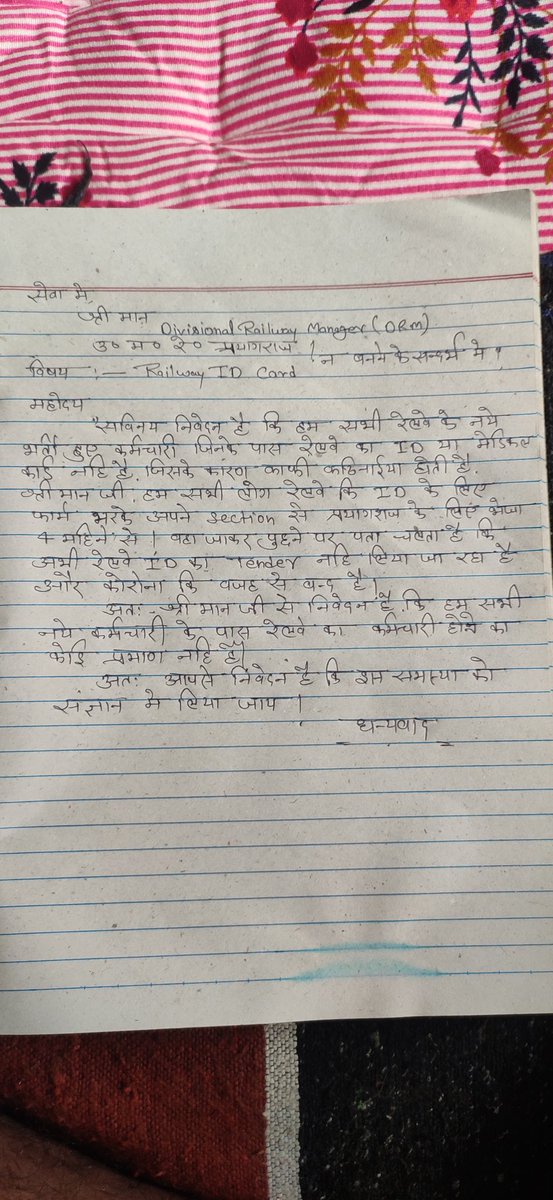 सेवा मे,
श्री मान Divisional Railway Manager (DRM)
उ० म० रे० प्रयागराज !
विषय :— Railway ID Card न बनने के सन्दर्भ मे !
महोदय
सविनय निवेदन है कि हम सभी रेलवे के नये
भर्ती हुए कर्मचारी जिनके पास रेलवे का ID या मेडिकल
कार्ड नहि है, जिसके कारण काफी कठिनाईया होती है.
श्री मान जी, हम सभी लोग रेलवे कि ID के लिए
फार्म भरके अपने section से प्रयागराज के लिए भेजा
4 महिने से । वहा जाकर पुछने पर पता चलता है कि
अभी रेलवे ID का Tender नहि लिया जा रहा है
और कोरोना कि वजह से बन्द है !
अतः - श्री मान जी से निवेदन है. कि हम सभी
नये कर्मचारी के पास रेलवे का कर्मचारी होने का
कोई प्रमाण नहि है।
अतः आपसे निवेदन है कि इस समस्या को
संज्ञान मे लिया जाय ।
धन्यवाद